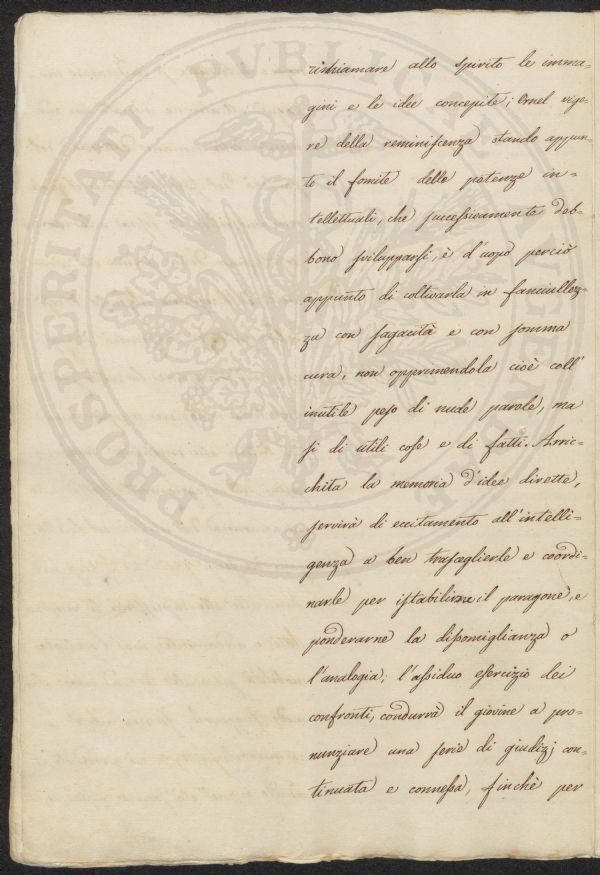 richiamare allo spirito le imma-
gini e le idee concepite; Ornel vigo-
re della reminiſcenza stando appun-
to il fomite delle potenze in-
tellettuali, che ſucceſsivamente deb-
bono ſvilupparſi, è d'uopo perciò
appunto di coltivarla in fanciullez-
za con ſagacità e con ſomma
cura, non opprimendola cioè coll'
inutile peſo di nude parole, ma
ſi di utili coſe e di fatti. Arric-
chita la memoria d'idee dirette,
ſervirà di eccitamento all'intelli-
genza a ben traſceglierle e coordi-
narle per iſtabilirne il paragone, e
ponderarne la diſsomiglianza o
l'analogia; l'aſsiduo eſercizio dei
confronti, condurrà il giovine a pro-
nunziare una ſerie di giudizj con-
tinuata e conneſsa, finchè per
PROSPERITATI PVBLICAE